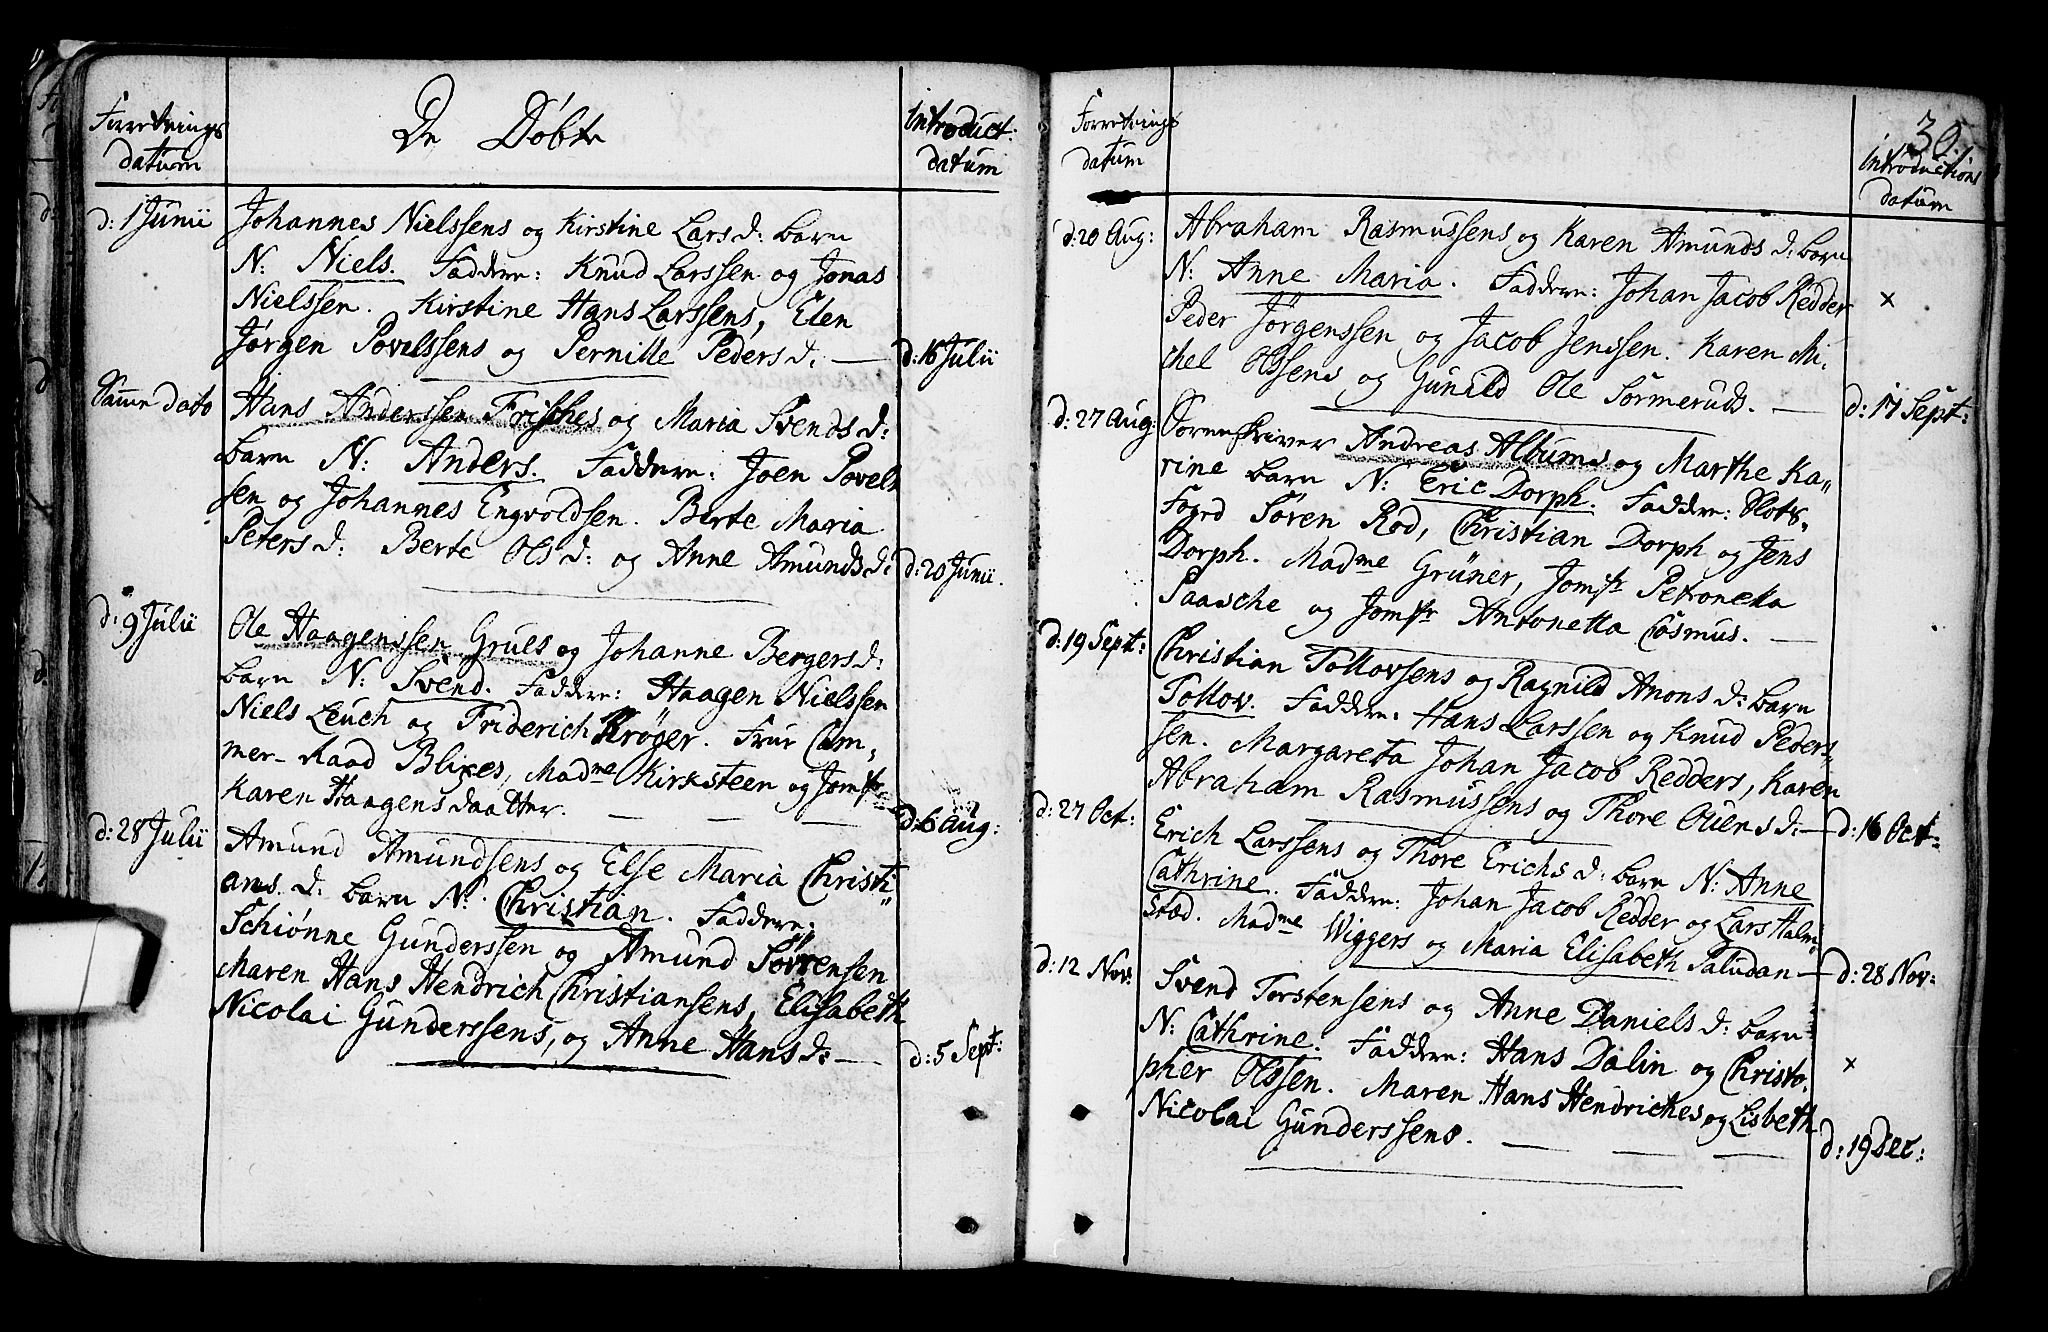 Forretnings
datum
De Döbte
introduct:
datum
d: 1 Junii
Johannes Nielssens og Kirstine Lars d: barn
N: Niels. Faddere: Knud Larssen og Jonas
Nielssen. Kirstine Hans Larssens, Elen
Jørgen Povelssens og Pernille Peders d:
d: 16 Julii
Samme dato
Hans Anderssen Frisches og Maria Svends d:
barn N: Anders. Faddere: Joen Povels
sen og Johannes Engvoldsen. Berte Maria
Peters d: Berte Ols d: og Anne Amunds d:
d: 20 Junii.
d: 9 Julii
Ole Haagenssen Grues og Johanne Bergers d:
barn N: Svend. Faddere: Haagen Nielssen
Niels Leuch og Friderich Krøger. Frue Cam„
mer-Raad Blixes, Madme Kirksteen og Jomfr
Karen Haagens daatter.
d: 6 Aug:
d: 28 Julii
Amund Amundsens og Else Maria Christi„
ans d: barn N: Christian. Faddere:
Schiønne Gunderssen og Amund Sørensen
Maren Hans Hendrich Christiansens, Elisabeth
Nicolai Gunderssens, og Anne Hans d:
d: 5 Sept:
Forretnings
datum
35.
introductions
datum
d: 20 Aug:
Abraham Rasmussens og Karen Amunds d: barn
N: Anne Maria. Faddere: Johan Jacob Redder
×
Peder Jørgenssen og Jacob Jenssen. Karen Mi„
chel Olssens og Gunild Ole Sørmeruds.
d: 17 Sept:
d: 27 Aug:
Sorenskriver Andreas Albums og Marthe Ka„
rine barn N: Eric Dorph. Faddere: Slots-
Fogd Søren Rod, Christian Dorph og Jens
Dorph. Madme Grüner, Jomfr Petronella
Paasche og Jomfr Antonetta Cosmus.
d: 19 Sept:
Christian Tollovsens og Ragnild Anons d: barn
Tollov. Faddere: Hans Larssen og Knud Peders
sen. Margareta Johan Jacob Redders, Karen
Abraham Rasmussens og Thore Oliens d:
d: 16 Oct:
d: 27 Oct:
Erich Larssens og Thore Erichs d: barn N: Anne
Cathrine. Faddere: Johan Jacob Redder og Lars Halm„
stæd. Madme Wiggers og Maria Elisabeth Paludan
d: 28 Nov:
d: 12 Nov:
Svend Torstensens og Anne Daniels d: barn
N: Cathrine. Faddere: Hans Dalin og Christo„
×
pher Olssen. Maren Hans Hendriches og Lisbeth
Nicolai Gunderssens.
d: 19 Dec: